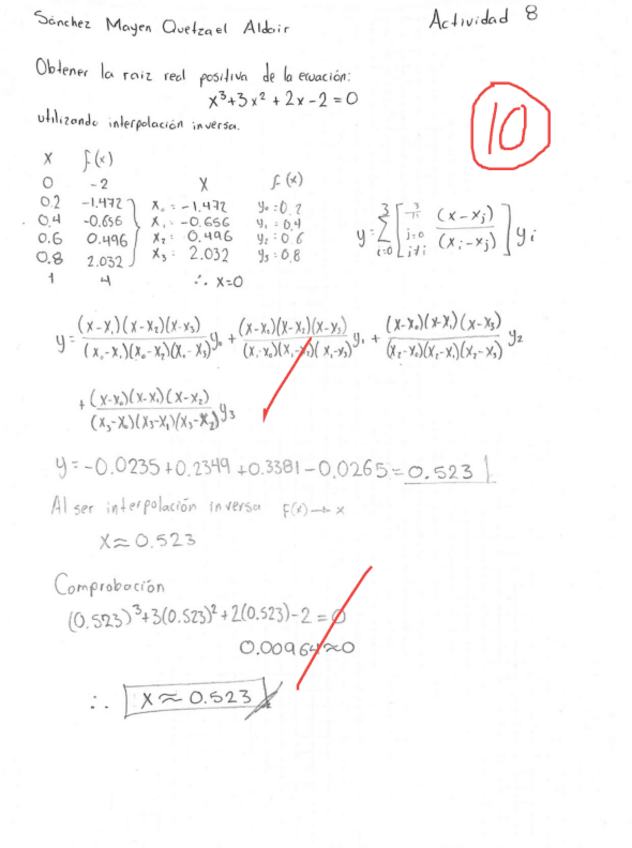 Sánchez Mayen Quetzael Aldair
Actividad 8
Obtener la raiz real positiva de la ecuación:
x³+3x²+2x-2=0
utilizando interpolación inversa.
10
x f(x)
0 -2
0.2 -1.472
0.4 -0.656
0.6 0.496
0.8 2.032
1 4
x f(x)
x₀=-1.472 y₀=0.2
x₁=-0.656 y₁=0.4
x₂=0.496 y₂=0.6
x₃=2.032 y₃=0.8
∴ x=0
y=Σ³ᵢ₌₀[π³ⱼ₌₀ⱼ≠ᵢ (x-xⱼ)/(xᵢ-xⱼ)]yᵢ
y=(x-x₁)(x-x₂)(x-x₃)/(x₀-x₁)(x₀-x₂)(x₀-x₃)y₀+(x-x₀)(x-x₂)(x-x₃)/(x₁-x₀)(x₁-x₂)(x₁-x₃)y₁+(x-x₀)(x-x₁)(x-x₃)/(x₂-x₀)(x₂-x₁)(x₂-x₃)y₂
+(x-x₀)(x-x₁)(x-x₂)/(x₃-x₀)(x₃-x₁)(x₃-x₂)y₃
y=-0.0235+0.2349+0.3381-0.0265=0.523
Al ser interpolación inversa f(x)→x
x≈0.523
Comprobación
(0.523)³+3(0.523)²+2(0.523)-2=0
0.00964≈0
∴ x≈0.523